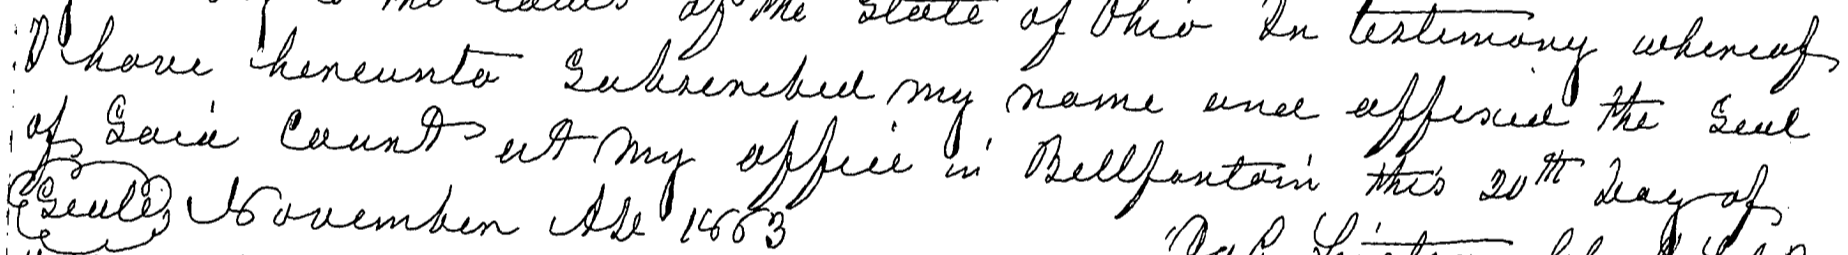 to the Laws of the State of Ohio In testimony whereof
I have hereunto Subscribed my name and affixed the Seal
of Said Court at my office in Bellfontain this 20th Day of
Seal November AD 1863